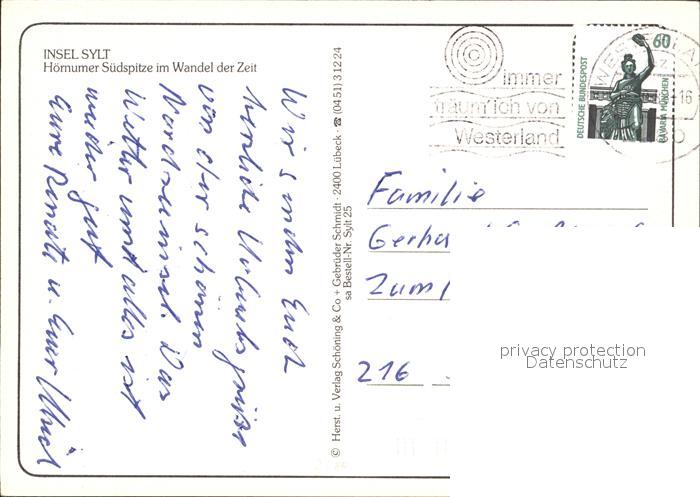 INSEL SYLT
Hörnumer Südspitze im Wandel der Zeit
Wir senden Euch
herzliche Urlaubsgrüße
von der schönen
Nordseeinsel. Das
Wetter und alles ist
wieder gut
Eure Renate u. Euer Ulrich
© Herst. u. Verlag Schöning & Co + Gebrüder Schmidt · 2400 Lübeck · ☎ (04 51) 3 12 24
sa Bestell-Nr. Sylt 25
immer
träum' ich von
Westerland
60
DEUTSCHE BUNDESPOST
BAVARIA MÜNCHEN
16
Familie
Gerha
Zum
216
privacy protection
Datenschutz